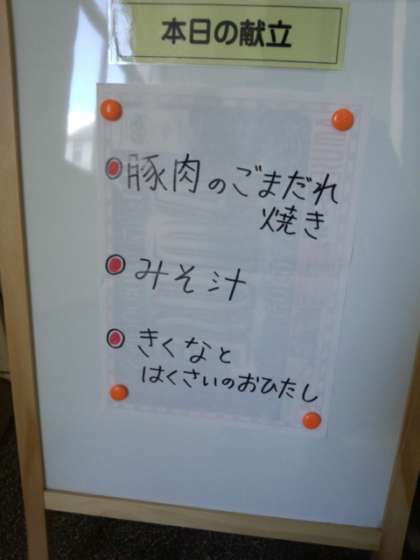 本日の献立
豚肉のごまだれ
焼き
みそ汁
きくなと
はくさいのおひたし